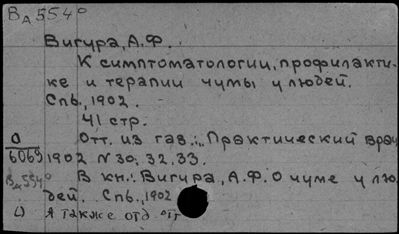 Вд 554°
Вигура, А.Ф.
К симптоматологии, профилакти-
ке и терапии чумы у людей.
Спб., 1902.
41 стр.
Отт. из газ.: „Практический врач
О
6069 1902 N 30; 32.33.
Вд 554° В кн.: Вигура, А.Ф. О чуме у лю-
дей. Спб., 1902
а также отд. отт